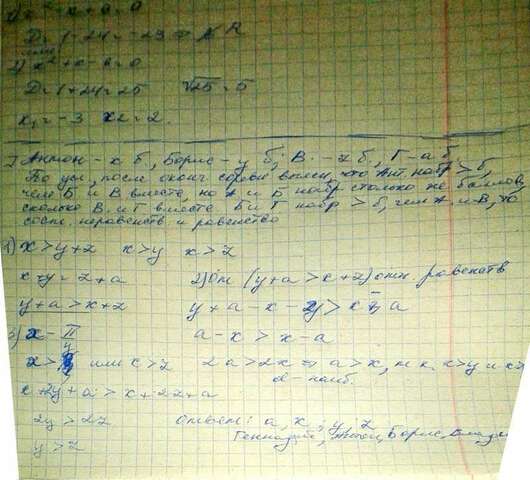 D = 1 - 24 = -23 ⇒ ∉ R
2) x² + x - 6 = 0
D = 1 + 24 = 25 √25 = 5
x₁ = -3 x₂ = 2.
2 Антон - x б, Борис - y б, В. - z б, Г - a б
По усл, после что Ант. набр > б,
чем Б и В вместе, но А и Б набр столько же баллов,
сколько В. и Г вместе. Б и Г набр > б, чем А и В, то
сост. неравенств и равенство
1) x > y + z x > y x > z
x + y = z + a 2) От (y + a > x + z) отн. равенств
y + a > x + z y + a - x - y > x - a
3) a - x > x - a
или x > z 2a > 2x ⇒ a > x, т.к. x > y и x > z
a - наиб.
x + 2y + a > x + 2z + a
2y > 2z Ответ: a, x, y, z
y > z Геннадий, Антон, Борис,